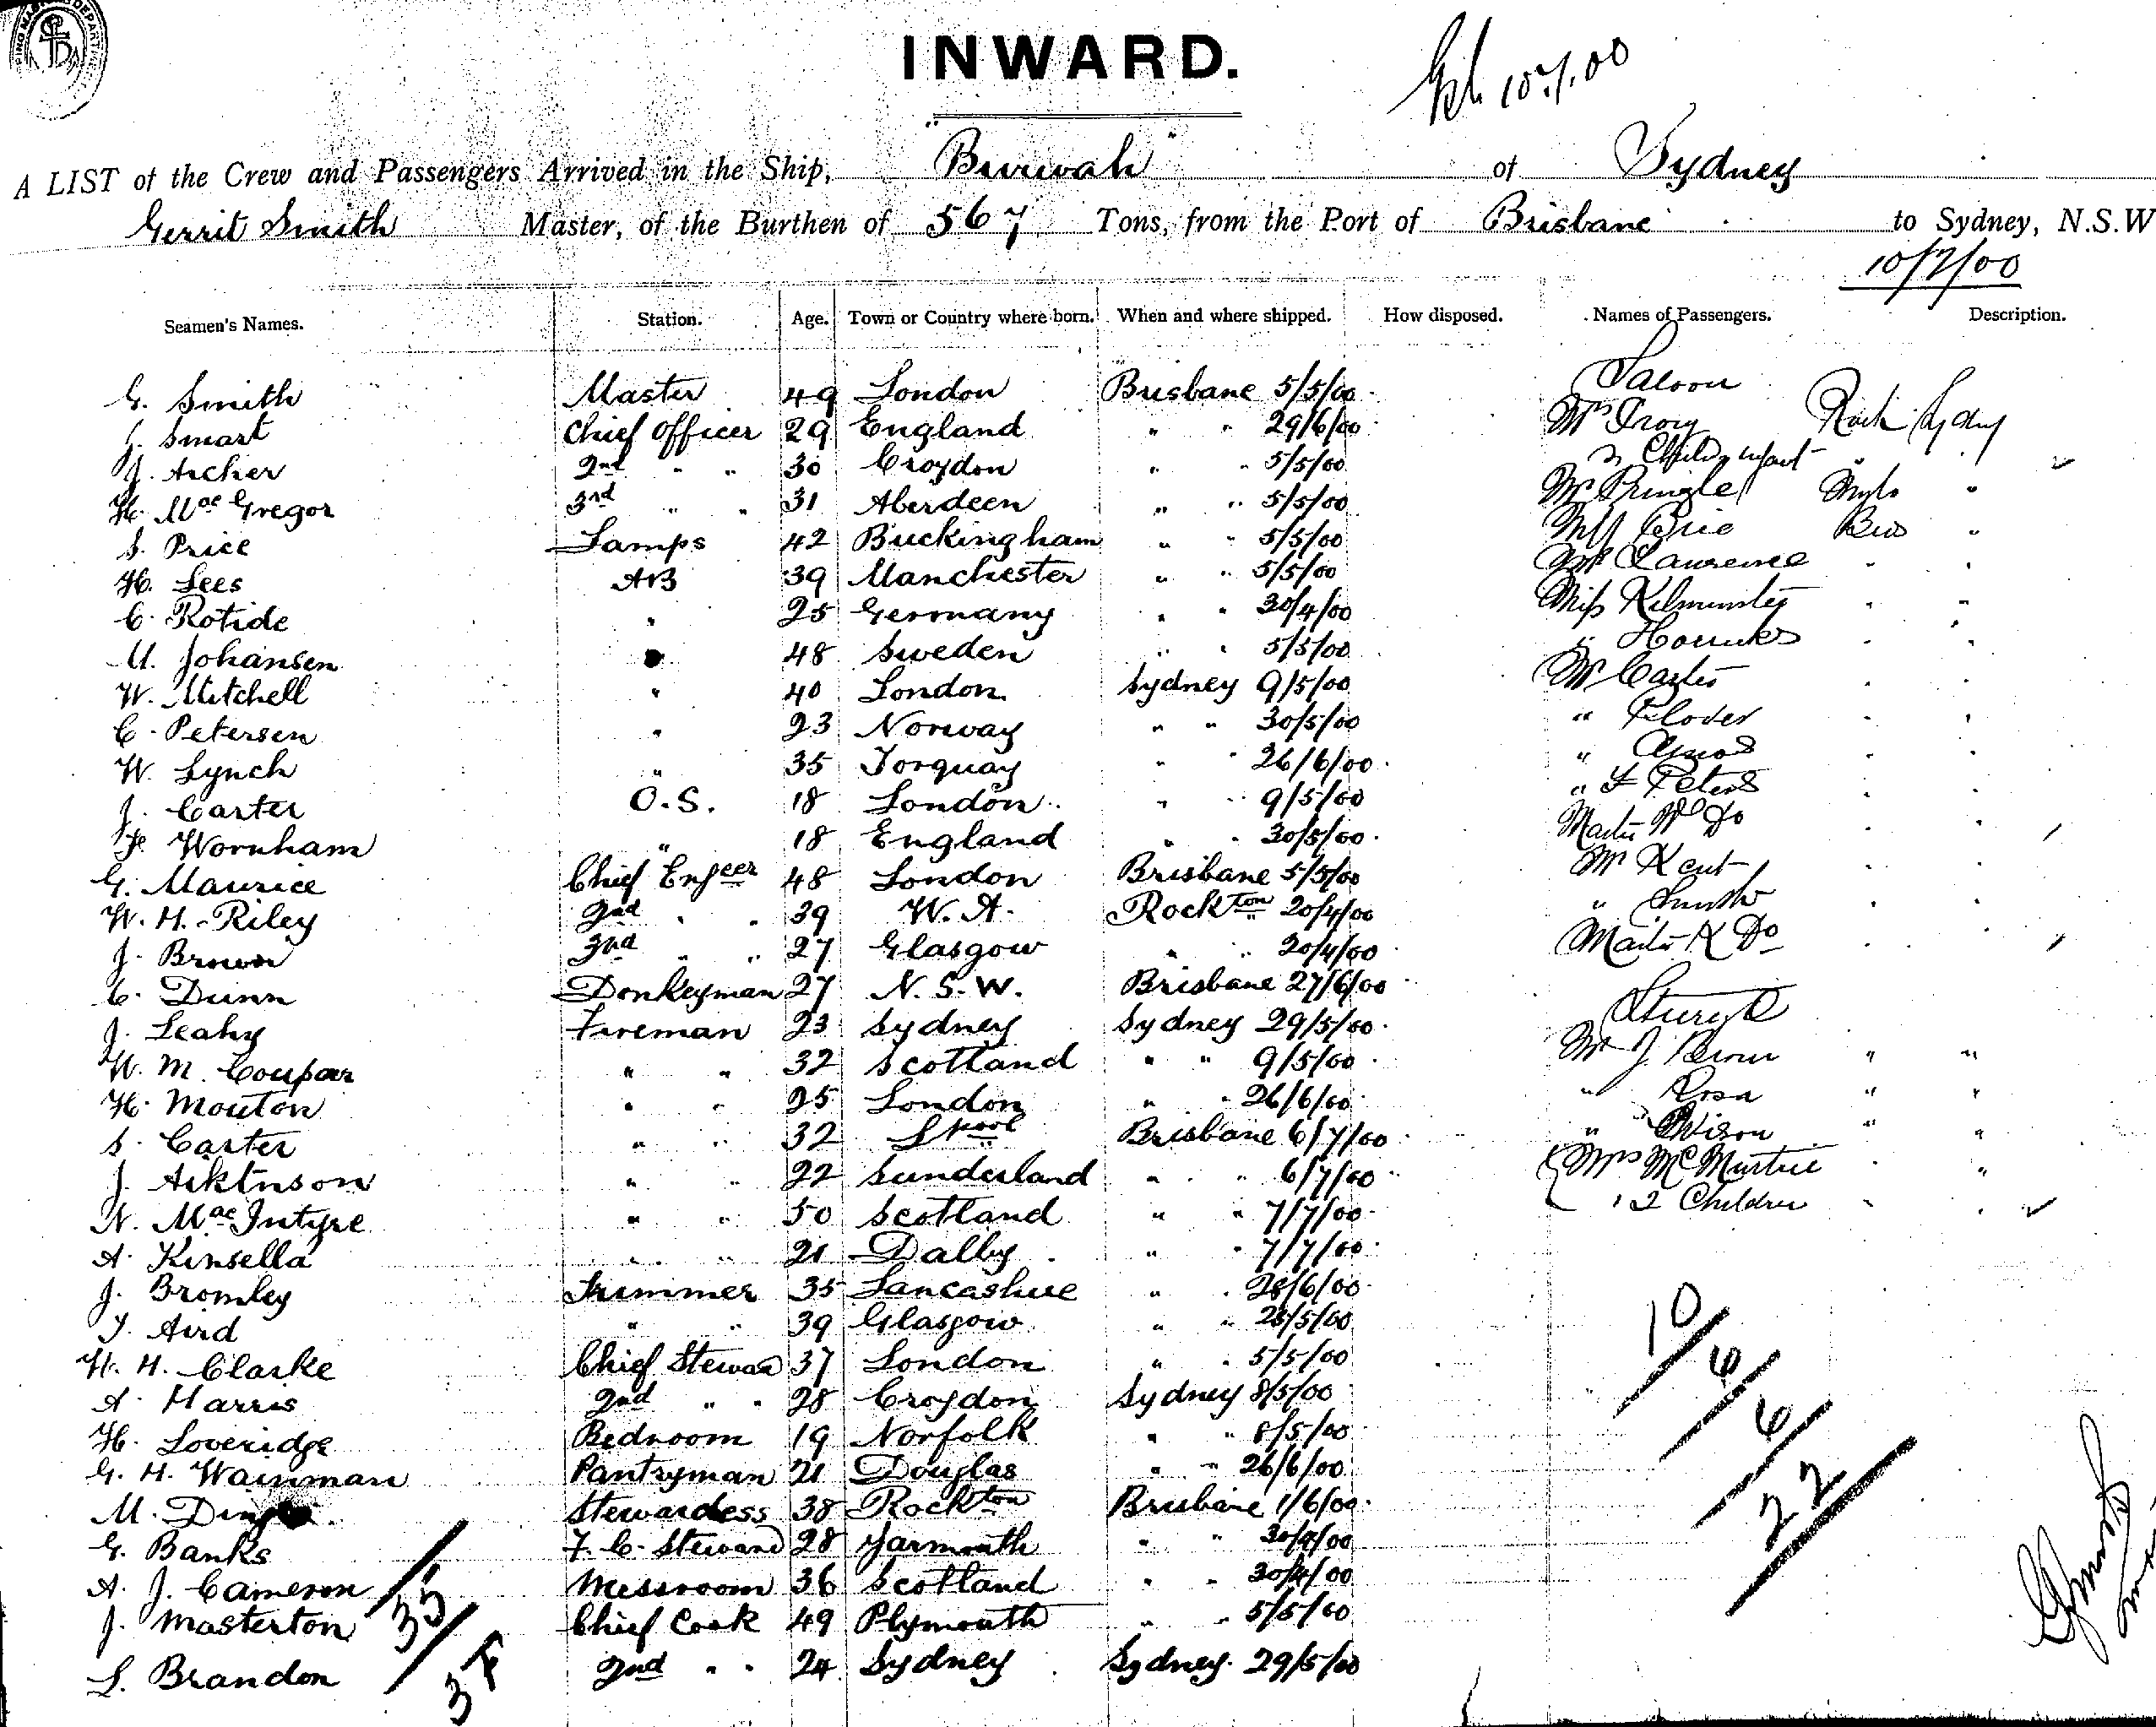 INWARD.
10.7.00
A LIST of the Crew and Passengers Arrived in the Ship, "Burwah" of Sydney
Gerrit Smith Master, of the Burthen of 567 Tons, from the Port of Brisbane to Sydney, N.S.W
10/7/00
Seamen's Names. Station. Age. Town or Country where born. When and where shipped. How disposed. Names of Passengers. Description.
Saloon
G. Smith Master 49 London Brisbane 5/5/00
J. Smart Chief Officer 29 England " " 29/6/00 Mrs Troy Rock Sydney
J. Archer 2nd " " 30 Croydon " " 5/5/00 Child infant "
H. Mac Gregor 3rd " " 31 Aberdeen " " 5/5/00 Pringle "
S. Price Lamps 42 Buckingham " " 5/5/00 Brie Bris "
H. Lees AB 39 Manchester " " 5/5/00 Lawrence " "
C. Rotide " 25 Germany " " 30/4/00 Miss Kilminster " "
U. Johansen 48 Sweden " " 5/5/00 " " "
W. Mitchell " 40 London Sydney 9/5/00 Mr " "
C. Petersen " 23 Norway " " 30/5/00 " Plover " "
W. Lynch " 35 Torquay " " 26/6/00 " Amos " "
J. Carter O.S. 18 London " " 9/5/00 " F Peters " "
F. Wornham " 18 England " " 30/5/00 Master Wm Do " "
G. Maurice Chief Engeer 48 London Brisbane 5/5/00 Mr Kent " "
W. H. Riley 2nd " " 39 W. A. Rockton 20/4/00 " Smith " "
J. Brown 3rd " " 27 Glasgow " " 20/4/00 Master K Do " "
C. Dunn Donkeyman 27 N. S. W. Brisbane 27/6/00
J. Leahy Fireman 23 Sydney Sydney 29/5/00
W. M. Coupar " " 32 Scotland " " 9/5/00 Mr J. " "
H. Mouton " " 25 London " " 26/6/00 " Rosa " "
S. Carter " " 32 Lpool Brisbane 6/7/00 " " "
J. Aiktnson " " 22 Sunderland " " 6/7/00 Mrs McMurtrie " "
N. Mac Intyre " " 50 Scotland " " 7/7/00 " 2 Children " "
A. Kinsella " " 21 Dalby " " 7/7/00
J. Bromley Trimmer 35 Lancashire " " 28/6/00
J. Aird " " 39 Glasgow " " 28/5/00
W. H. Clarke Chief Steward 37 London " " 5/5/00
A. Harris 2nd " " 28 Croydon Sydney 8/5/00
H. Loveridge Bedroom 19 Norfolk " " 8/5/00
G. H. Wainman Pantryman 21 Douglas " " 26/6/00
M. Stewardess 38 Rockton Brisbane 1/6/00
G. Banks F. C. Steward 28 Yarmouth " "
A. J. Cameron Messroom 36 Scotland " " 30/4/00
J. Masterton Chief Cook 49 Plymouth " " 5/5/00
L. Brandon 2nd " " 24 Sydney Sydney. 29/5/00
35
3 F
10
6
6
22